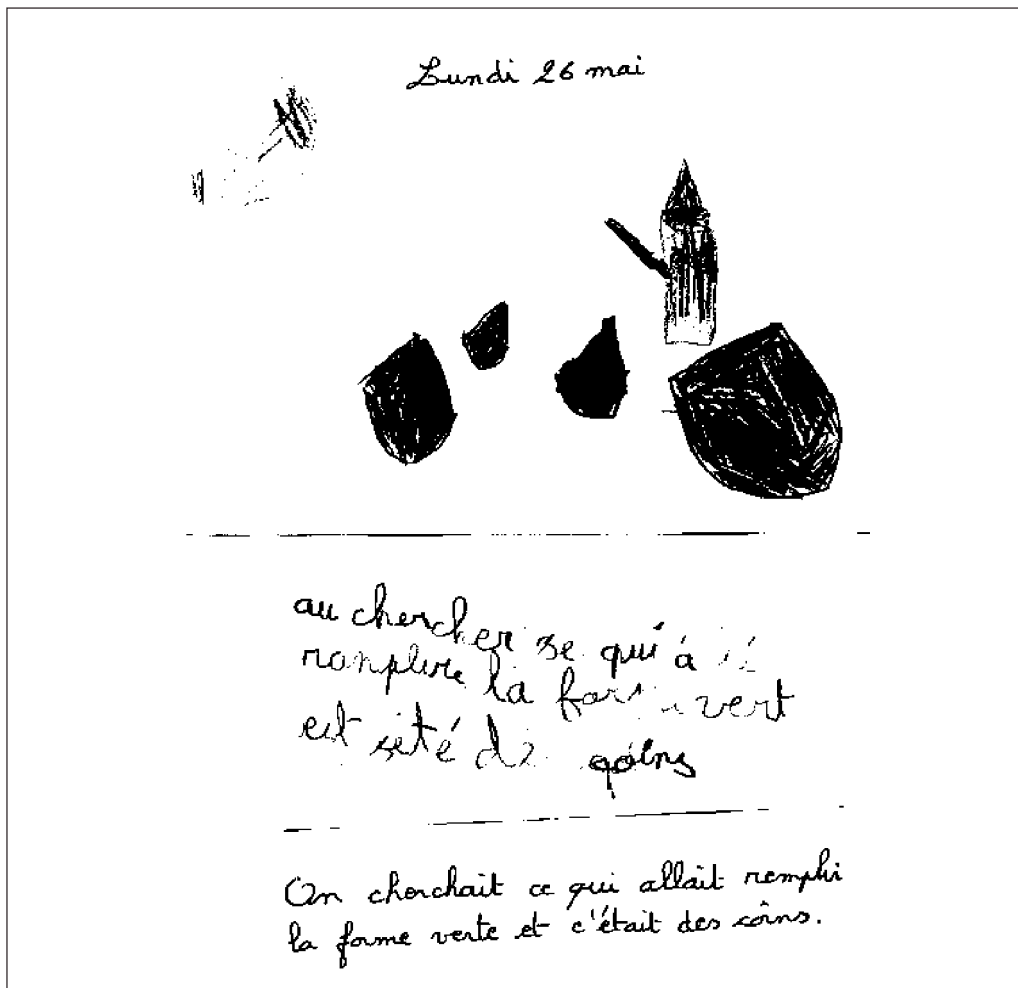 Lundi 26 mai
au chercher se qui à
ranplire la vert
est seté
On cherchait ce qui allait remphi
la forme verte et c'était des coins.